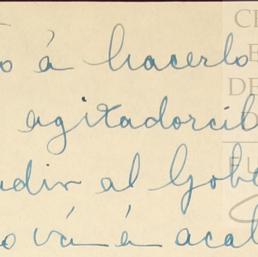 o á hacerlo
agitadorcil
udir al Gob
o vá á acat
CE
E
DE